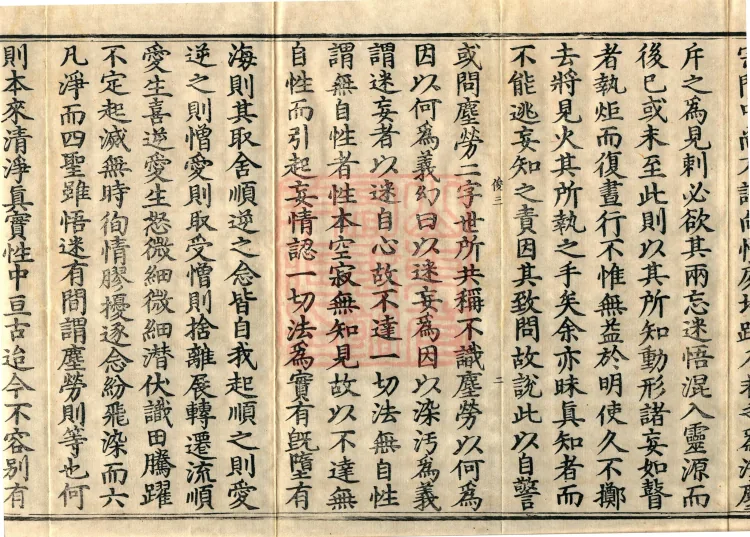 斥之為見刺必欲其兩忘迷悟混入靈源而
後已或未至此則以其所知動形諸妄如瞽
者執炬而復晝行不惟無益於明使久不擲
去將見火其所執之手矣余亦昧眞知者而
不能逃妄知之責因其致問故說此以自警
俊三
二
或問塵勞二字世所共稱不識塵勞以何爲
因以何爲義幻曰以迷妄爲因以染污爲義
謂迷妄者以迷自心故不達一切法無自性
謂無自性者性本空寂無知見故以不達無
自性而引起妄情認一切法爲實有旣墮有
海則其取舍順逆之念皆自我起順之則愛
逆之則憎愛則取受憎則捨離展轉遷流順
愛生喜逆愛生怒微細微細潜伏識田騰躍
不定起滅無時徇情膠擾逐念紛飛染而六
凡淨而四聖雖悟迷有間謂塵勞則等也何
則本來清淨眞實性中亘古迨今不容別有